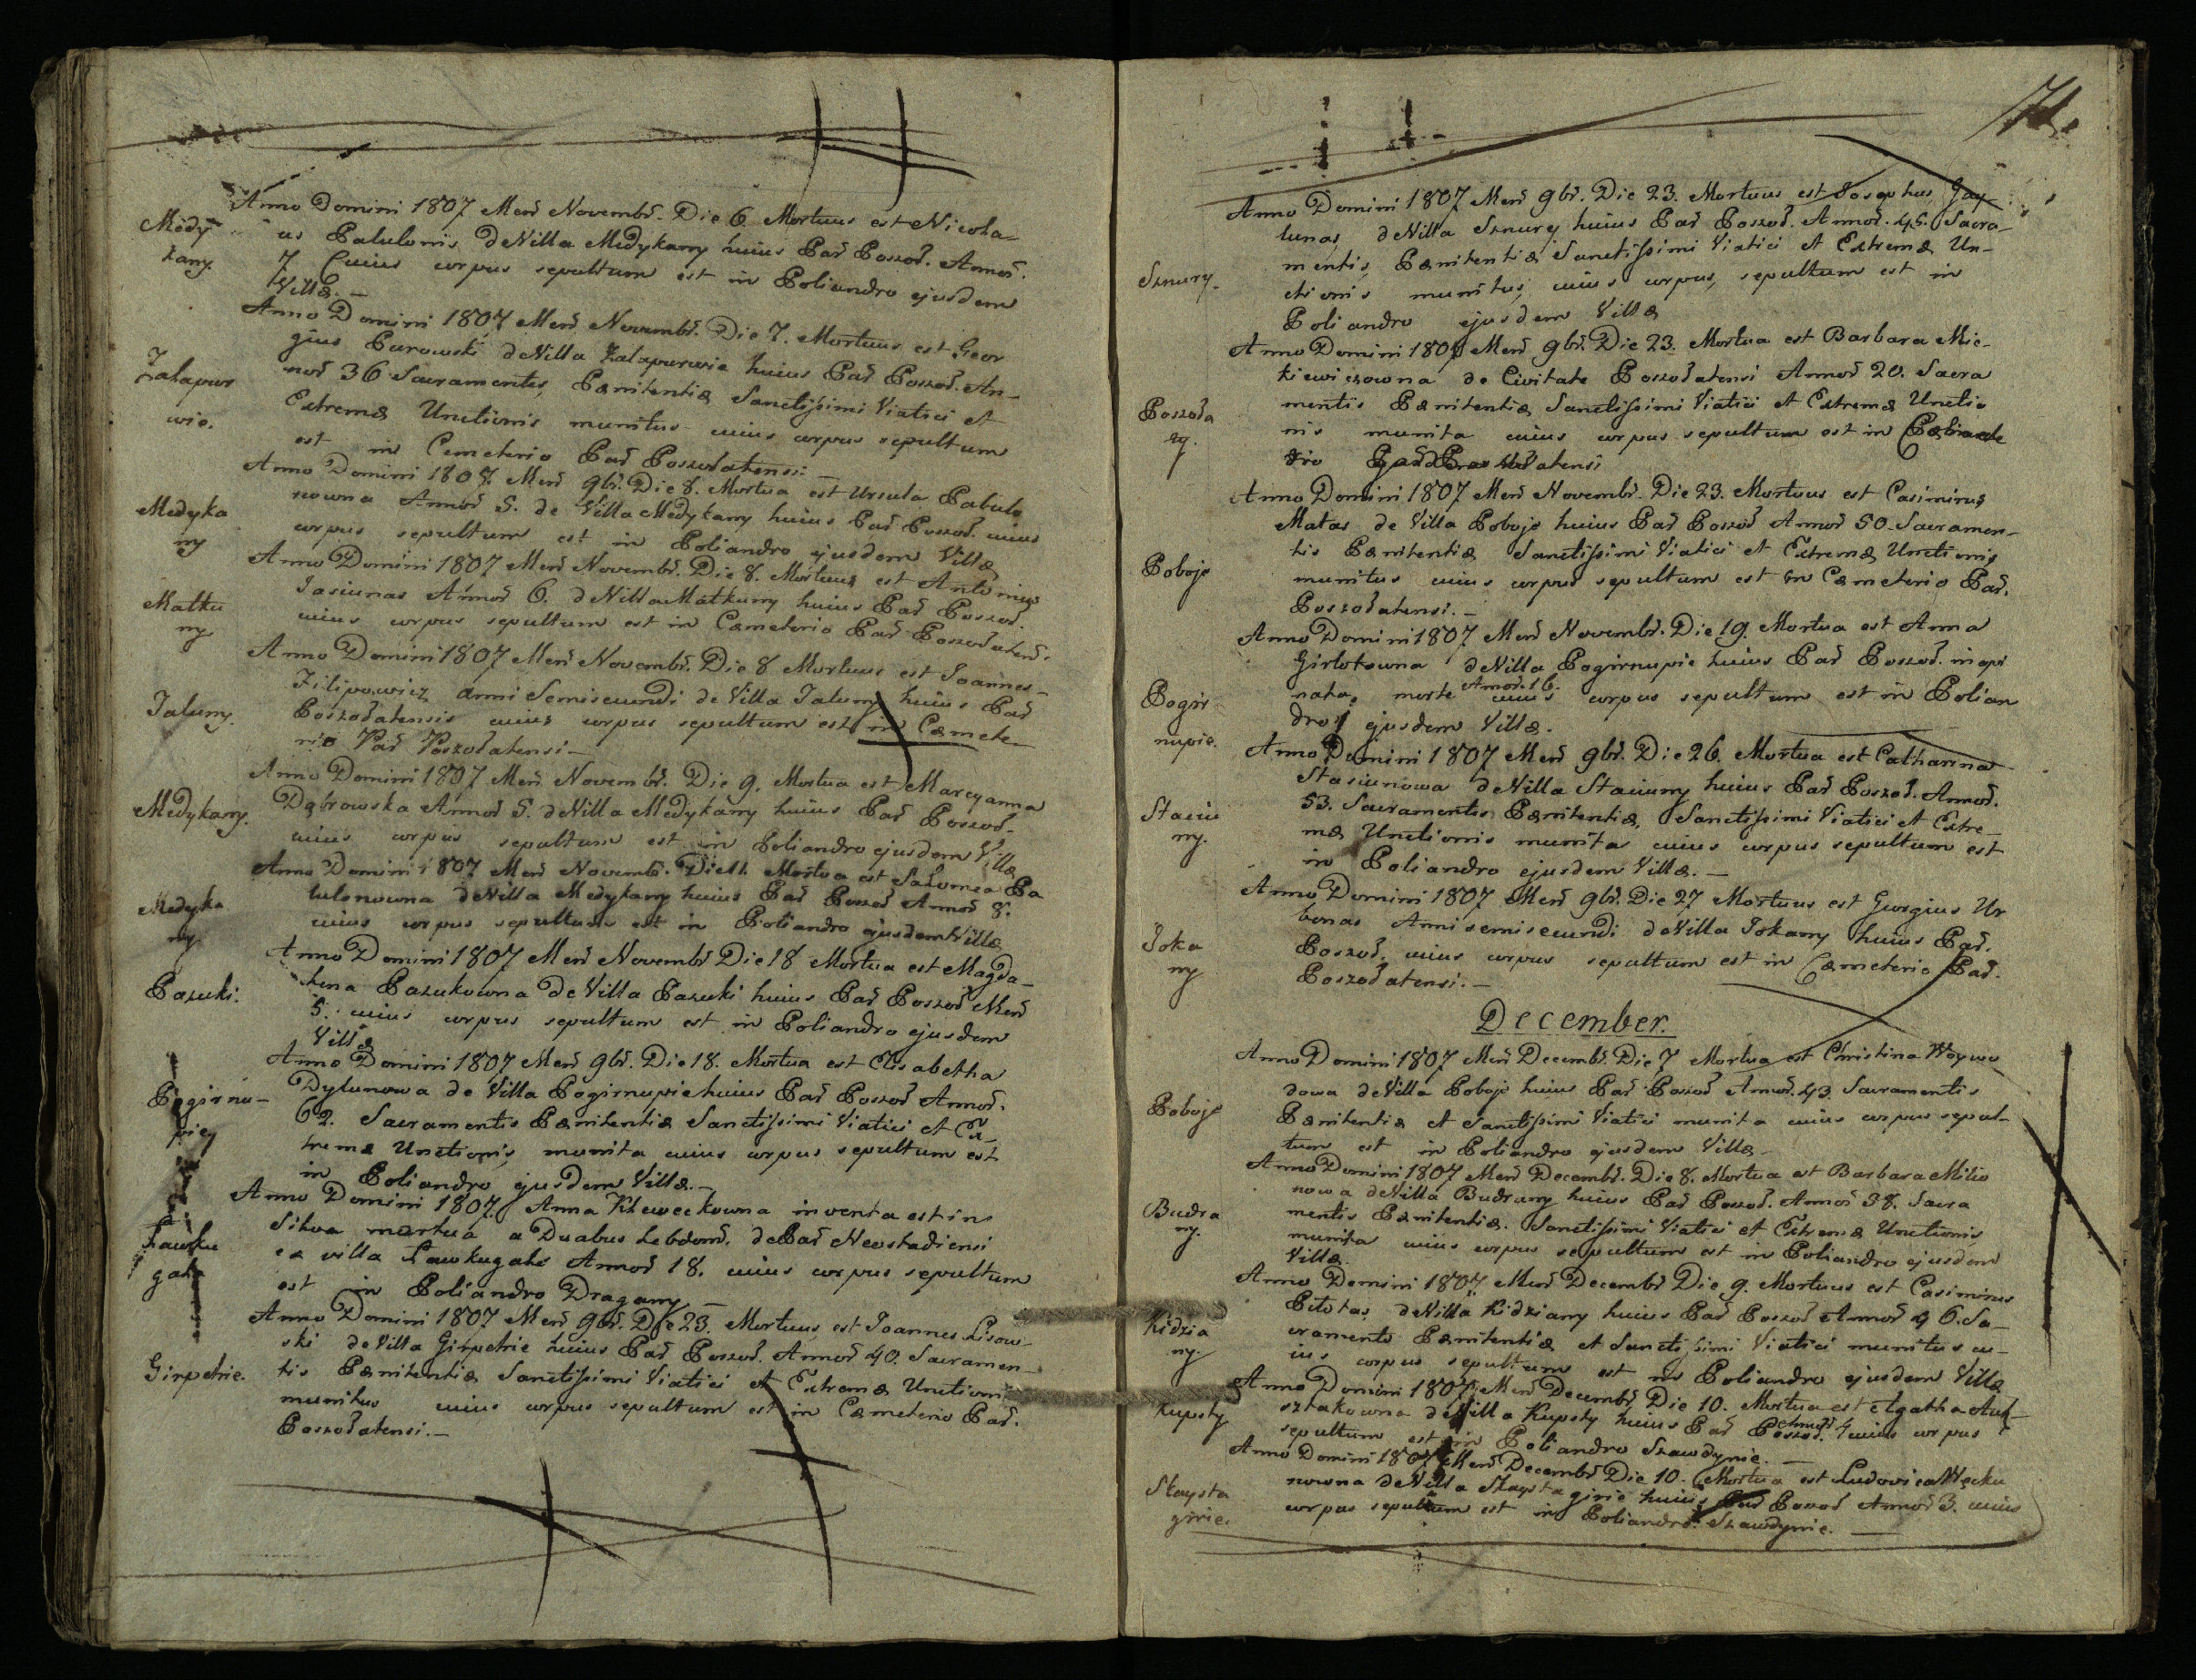 Medy
kany.
Anno Domini 1807 Mens̃ Novembr̃. Die 6. Mortuus est Nicola-
us Palulonis de Villa Medykany huius Par̃ Poszoł. Annor̃.
7 Cuius corpus sepultum est in Poliandro ejusdem
Villæ.
Zatapur
wie.
Anno Domini 1807 Mens̃ Novembr̃. Die 7. Mortuus est Geor
gius Purowski de Villa Zatapurwie huius Par̃ Poszoł. An-
nor̃ 36 Sacramentis, Pænitentiæ Sanctissimi Viatici et
Extremæ Unctionis munitus cuius corpus sepultum
est in Cemeterio Par̃ Poszołatensi. —
Medyka
ny
Anno Domini 1807. Mens̃ 9br̃. Die 8. Mortua est Ursula Palulo
nowna Annor̃ 5. de Villa Medykany huius Par̃ Poszoł. cuius
corpus sepultum est in Poliandro ejusdem Villæ
Matku
ny
Anno Domini 1807 Mens̃ Novembr̃. Die 8. Mortuus est Antonius
Jasiunas Annor̃ 6. de Villa Matkuny huius Par̃ Poszoł.
cuius corpus sepultum est in Cæmeterio Par̃ Poszołatens̃.
Jaluny.
Anno Domini 1807 Mens̃ Novembr̃. Die 8 Mortuus est Joannes
Filipowicz anni Semisecundi de Villa Jaluny huius Par̃
Poszołatensis cuius corpus sepultum est in Cæmete-
rio Par̃ Poszołatensi —
Medykany.
Anno Domini 1807 Mens̃ Novembr̃. Die 9. Mortua est Marcyanna
Dąbrowska Annor̃ 5. de Villa Medykany huius Par̃ Poszoł.
cuius corpus sepultum est in Poliandro ejusdem Villæ
Medyka
ny.
Anno Domini 1807 Mens̃ Novembr̃. Die 11. Mortua est Salomea Pa
lulonowna de Villa Medykany huius Par̃ Poszoł Annor̃ 8.
cuius corpus sepultum est in Poliandro ejusdem Villæ
Pazuki.
Anno Domini 1807 Mens̃ Novembr̃ Die 18 Mortua est Magda-
lena Pazukowna de Villa Pazuki huius Par̃ Poszoł Mens̃
5. cuius corpus sepultum est in Poliandro ejusdem
Villæ
Pogirnu-
pie
Anno Domini 1807 Mens̃ 9br̃. Die 18. Mortua est Elisabetha
Dylunowa de Villa Pogirnupie huius Par̃ Poszoł Annor̃.
62. Sacramentis Pænitentiæ Sanctissimi Viatici et Ex-
tremæ Unctionis munita cuius corpus sepultum est
in Poliandro ejusdem Villæ. —
Ławku
gale
Anno Domini 1807. Anna Kleweckowna inventa est in
Silva mortua a Duabus hebdom̃. de Par̃ Neostadiensi
ex villa Ławkugale Annor̃ 18. cuius corpus sepultum
est in Poliandro Dragany —
Girpetrie.
Anno Domini 1807 Mens̃ 9br̃. Die 23. Mortuus est Joannes Lisow-
ski de Villa Girpetrie huius Par̃ Poszoł. Annor̃ 40. Sacramen-
tis Pænitentiæ Sanctissimi Viatici et Extremæ Unctionis
munitus cuius corpus sepultum est in Cæmeterio Par̃.
Poszołatensi. —
71.
Sznury.
Anno Domini 1807 Mens̃ 9br̃. Die 23. Mortuus est Josephus Gay
lunas de Villa Sznury huius Par̃ Poszoł. Annor̃. 45. Sacra-
mentis, Pænitentiæ Sanctissimi Viatici et Extremæ Un-
ctionis munitus, cuius corpus, sepultum est in
Poliandro ejusdem Villæ
Poszoła
ty.
Anno Domini 1807 Mens̃ 9br̃. Die 23. Mortua est Barbara Mic-
kiewiczowna de Civitate Poszołatensi Annor̃ 20. Sacra
mentis Pænitentiæ Sanctissimi Viatici et Extremæ Unctio
nis munita cuius corpus sepultum est in
Poboje
Anno Domini 1807 Mens̃ Novembr̃. Die 23. Mortuus est Casimirus
Matas de Villa Poboje huius Par̃ Poszoł Annor̃ 50. Sacramen-
tis Pænitentiæ Sanctissimi Viatici et Extremæ Unctionis
munitus cuius corpus sepultum est in Cæmeterio Par̃.
Poszołatensi. —
Pogir
nupie.
Anno Domini 1807 Mens̃ Novembr̃. Die 19. Mortua est Anna
Girlotowna de Villa Pogirnupie huius Par̃ Poszoł. inopi
nata morte Annor̃. 16. cuius corpus sepultum est in Polian
dro ejusdem Villæ.
Staciu
ny.
Anno Domini 1807 Mens̃ 9br̃. Die 26. Mortua est Catharina
Stasiunowa de Villa Staciuny huius Par̃ Poszoł. Annor̃.
53. Sacramentis Pænitentiæ, Sanctissimi Viatici et Extre-
mæ Unctionis munita cuius corpus sepultum est
in Poliandro ejusdem Villæ. —
Joka
ny
Anno Domini 1807 Mens̃ 9br̃. Die 27 Mortuus est Georgius Ur
bonas Anni semisecundi de Villa Jokany huius Par̃.
Poszoł. cuius corpus sepultum est in Cæmeterio Par̃.
Poszołatensi. —
December.
Poboje
Anno Domini 1807 Mens̃ Decembr̃. Die 7 Mortua est Christina Woywo
dowa de Villa Poboje huius Par̃ Poszoł Annor̃. 43. Sacramentis
Pænitentiæ et Sanctissimi Viatici munita cuius corpus sepul-
tum est in Poliandro ejusdem Villæ.
Budra
ny.
Anno Domini 1807 Mens̃ Decembr̃. Die 8. Mortua est Barbara Miliu
nowa de Villa Budrany huius Par̃ Poszoł. Annor̃ 38. Sacra
mentis Pænitentiæ. Sanctissimi Viatici et Extremæ Unctionis
munita cuius corpus sepultum est in Poliandro ejusdem
Villæ.
Kidzia
ny.
Anno Domini 1807 Mens̃ Decembr̃ Die 9. Mortuus est Casimirus
Pilotas de Villa Kidziany huius Par̃ Poszoł Annor̃ 46. Sa-
cramento Pænitentiæ et Sanctissimi Viatici munitus cu-
ius corpus sepultum est in Poliandro ejusdem Villæ
Kupsty
Anno Domini 1807 Mens̃ Decembr̃ Die 10. Mortua est Agatha Auk-
sztakowna de Villa Kupsty huius Par̃ Poszoł. Annor̃ 4 cuius corpus
sepultum est in Poliandro Szawdynie. —
Skaysta
girie.
Anno Domini 1807 Mens̃ Decembr̃ Die 10. Mortua est Ludovica
nowna de Villa Skaystagirie huius Par̃ Poszoł Annor̃ 3. cuius
corpus sepultum est in Poliandro Szawdynie. —